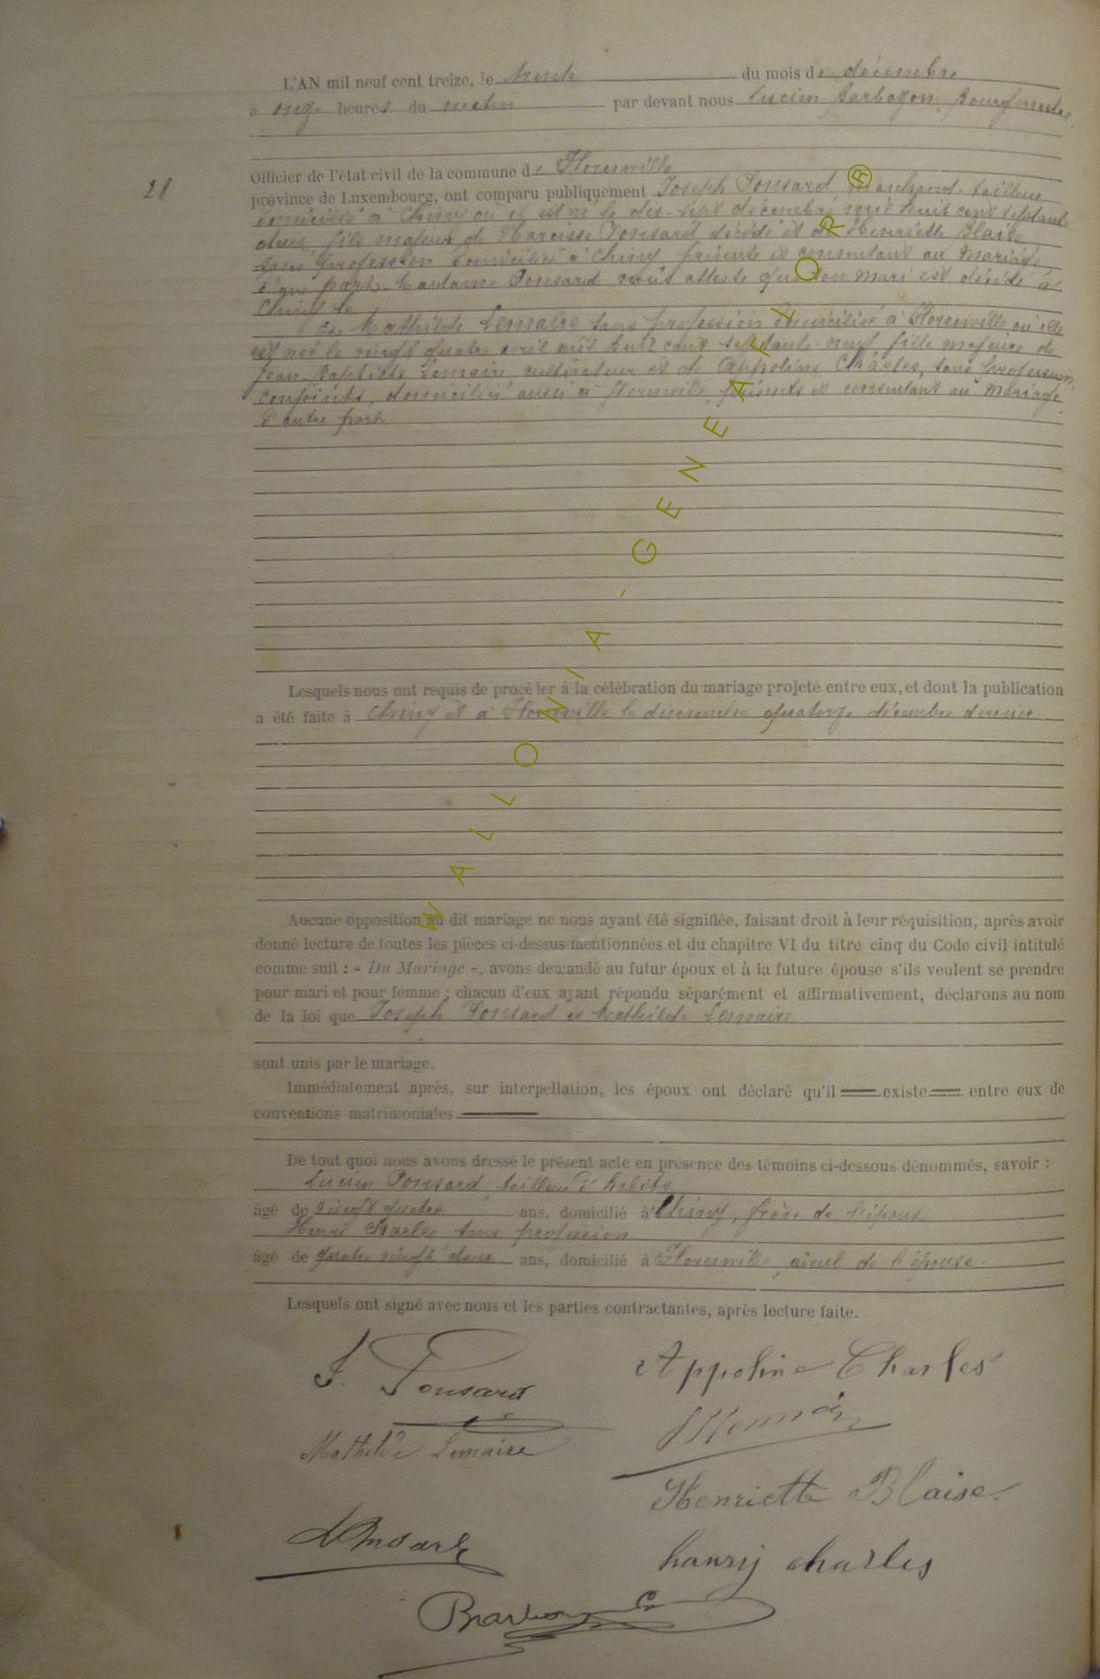 L'AN mil neuf cent treize, le trente du mois de décembre
à onze heures du matin par devant nous Lucien Barbazon, Bourgmestre
Officier de l'état civil de la commune de Florenville
28
province de Luxembourg, ont comparu publiquement Joseph Ponsard Marchand-tailleur
domicilié à Chiny où il est né le dix-sept décembre mil huit cent septante
deux, fils majeur de Narcisse Ponsard décédé et de Henriette Blaise
sans profession domiciliée à Chiny, présente et consentant au mariage
d'une part. Madame Ponsard nous atteste que son mari est décédé à
Chiny le
Et Mathilde Lemaire sans profession domiciliée à Florenville où elle
est née le vingt quatre avril mil huit cent septante-neuf fille majeure de
Jean Baptiste Lemaire cultivateur et de Appoline Charles, sans profession,
conjoints, domiciliés aussi à Florenville, présents et consentant au mariage
d'autre part.
Lesquels nous ont requis de procéder à la célébration du mariage projeté entre eux, et dont la publication
a été faite à Chiny et à Florenville le dimanche quatorze décembre dernier
Aucune opposition au dit mariage ne nous ayant été signifiée, faisant droit à leur réquisition, après avoir
donné lecture de toutes les pièces ci-dessus mentionnées et du chapitre VI du titre cinq du Code civil intitulé
comme suit : « Du Mariage », avons demandé au futur époux et à la future épouse s'ils veulent se prendre
pour mari et pour femme ; chacun d'eux ayant répondu séparément et affirmativement, déclarons au nom
de la loi que Joseph Ponsard et Mathilde Lemaire
sont unis par le mariage.
Immédiatement après, sur interpellation, les époux ont déclaré qu'il existe entre eux de
conventions matrimoniales
De tout quoi nous avons dressé le présent acte en présence des témoins ci-dessous dénommés, savoir :
Lucien Ponsard, tailleur d'habits
âgé de vingt quatre ans, domicilié à Chiny, frère de l'époux
Henri Charles sans profession
âgé de quatre vingt deux ans, domicilié à Florenville, aïeul de l'épouse.
Lesquels ont signé avec nous et les parties contractantes, après lecture faite.
J. Ponsard
Appoline Charles
Mathilde Lemaire
Henriette Blaise
L Ponsard
hanrij charles
Barbazon
WALLONIA-GENEALOR ®